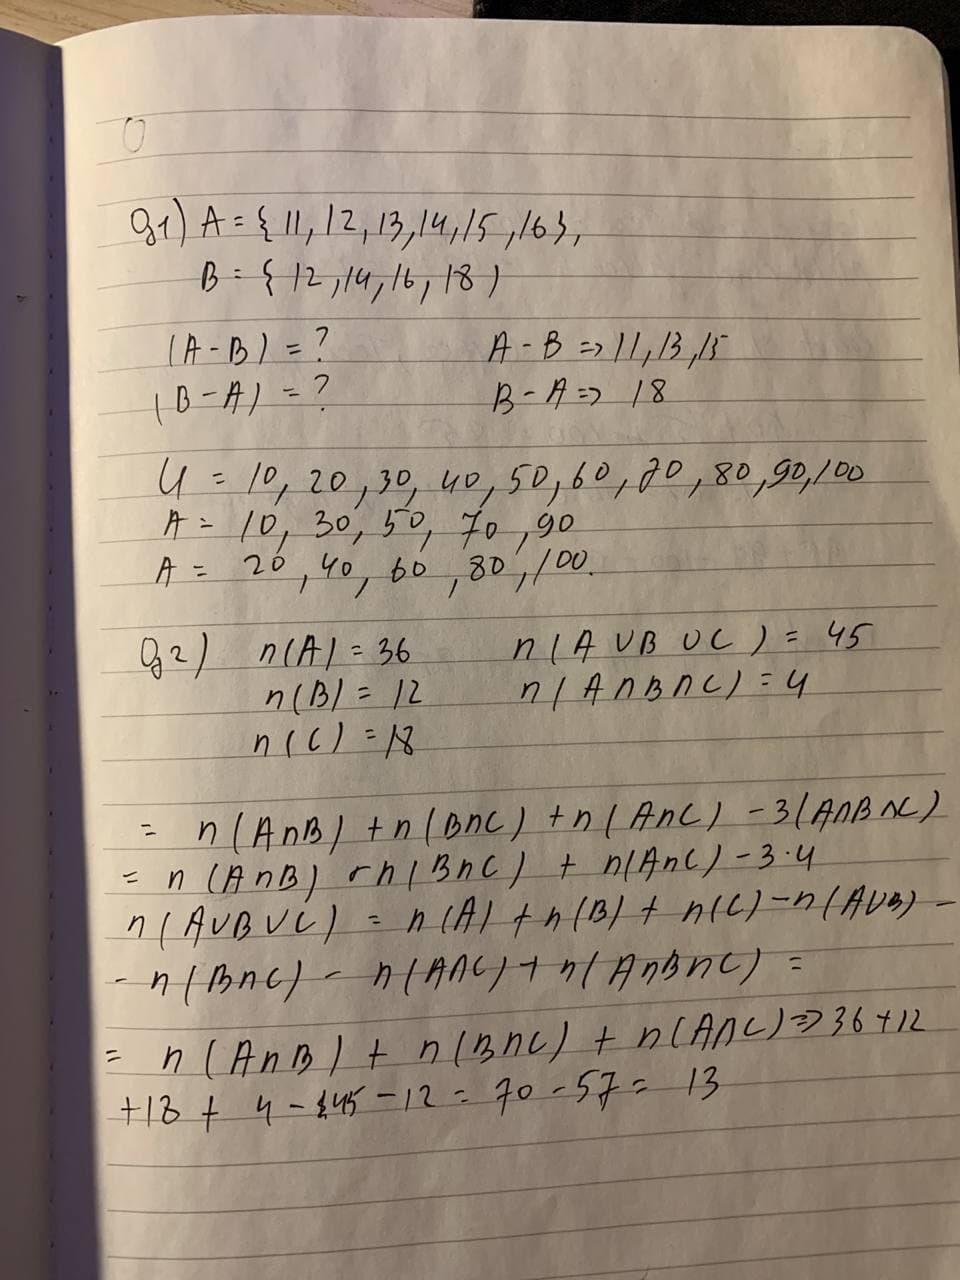 Q1) A = { 11, 12, 13, 14, 15, 16 },
B = { 12, 14, 16, 18 )
(A - B) = ? A - B => 11, 13, 15
(B - A) = ? B - A => 18
U = 10, 20, 30, 40, 50, 60, 70, 80, 90, 100
A = 10, 30, 50, 70, 90
A = 20, 40, 60, 80, 100.
Q2) n(A) = 36 n(A ∪ B ∪ C) = 45
n(B) = 12 n(A ∩ B ∩ C) = 4
n(C) = 18
= n(A∩B) + n(B∩C) + n(A∩C) - 3(A∩B∩C)
= n(A∩B) + n(B∩C) + n(A∩C) - 3·4
n(A∪B∪C) = n(A) + n(B) + n(C) - n(A∪B) -
- n(B∩C) - n(A∩C) + n(A∩B∩C) =
= n(A∩B) + n(B∩C) + n(A∩C) => 36 + 12
+ 18 + 4 - 45 - 12 = 70 - 57 = 13